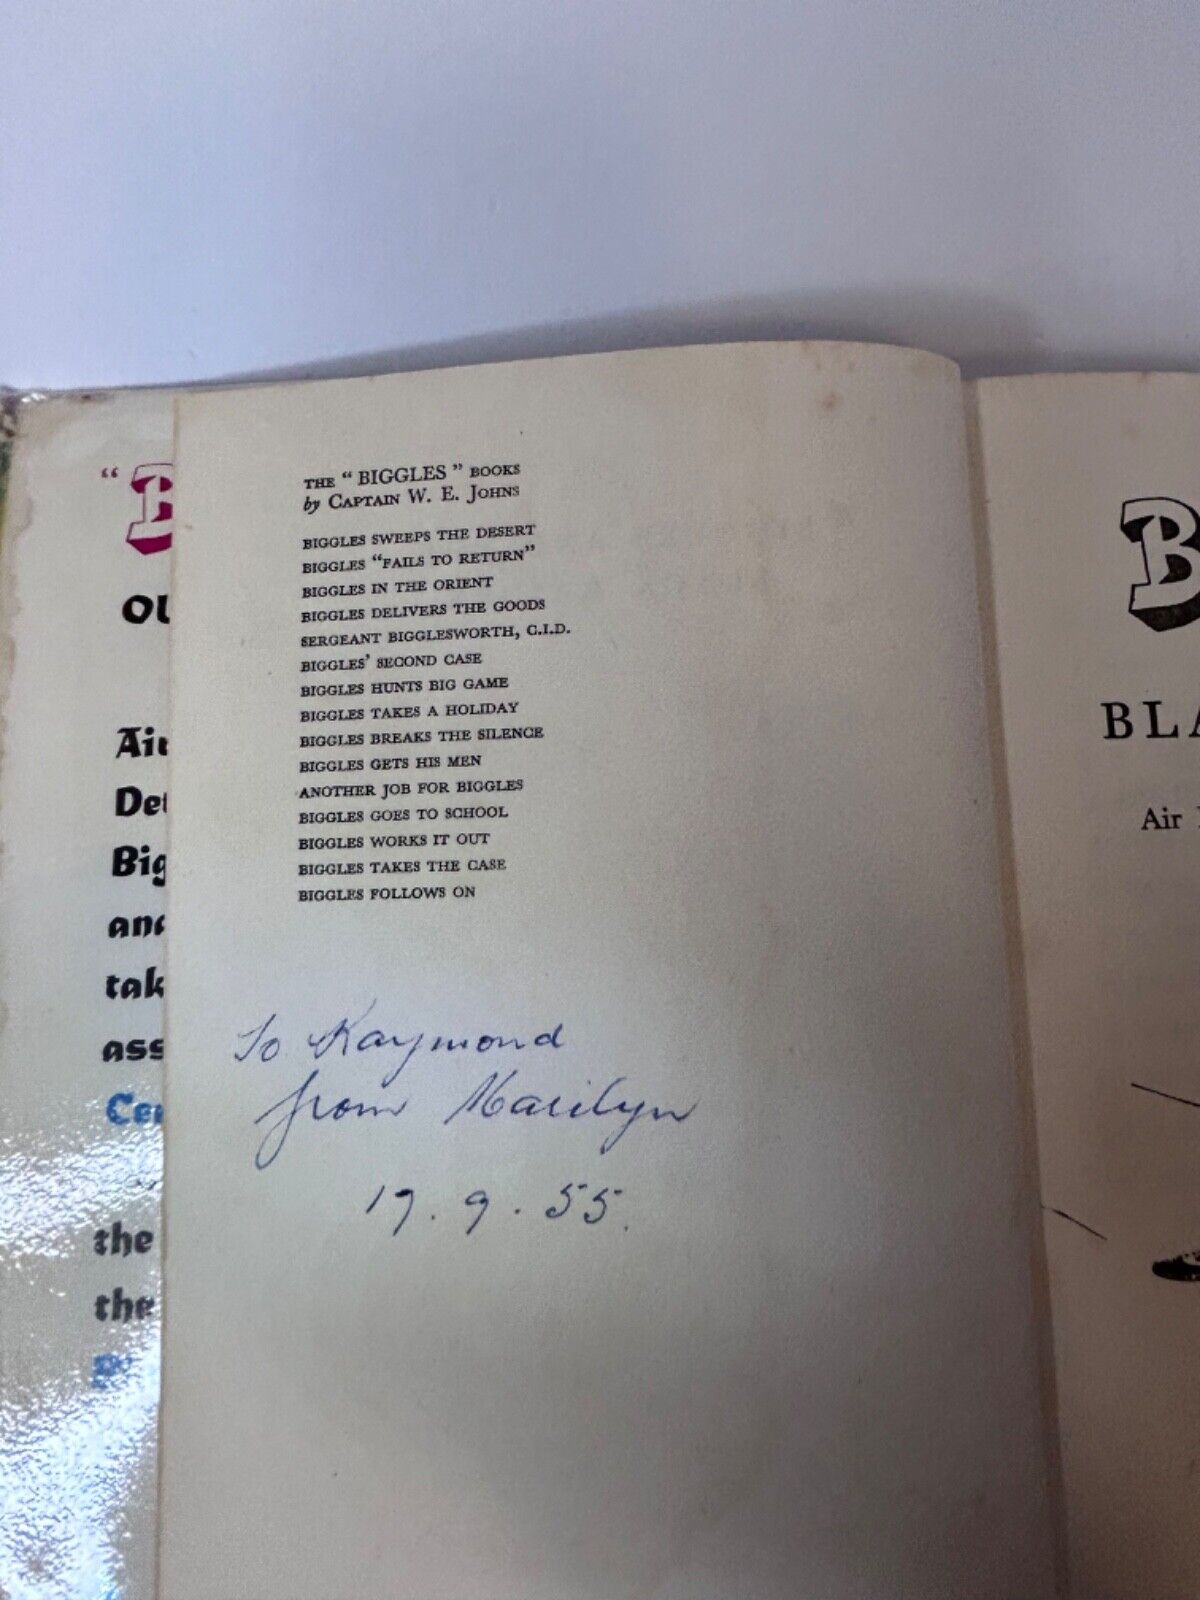 "B
OU
Air
Det
Big
and
tak
ass
Cen
the
the
THE "BIGGLES" BOOKS
by CAPTAIN W. E. JOHNS
BIGGLES SWEEPS THE DESERT
BIGGLES "FAILS TO RETURN"
BIGGLES IN THE ORIENT
BIGGLES DELIVERS THE GOODS
SERGEANT BIGGLESWORTH, C.I.D.
BIGGLES' SECOND CASE
BIGGLES HUNTS BIG GAME
BIGGLES TAKES A HOLIDAY
BIGGLES BREAKS THE SILENCE
BIGGLES GETS HIS MEN
ANOTHER JOB FOR BIGGLES
BIGGLES GOES TO SCHOOL
BIGGLES WORKS IT OUT
BIGGLES TAKES THE CASE
BIGGLES FOLLOWS ON
To Raymond
from Marilyn
17.9.55.
B
BLA
Air